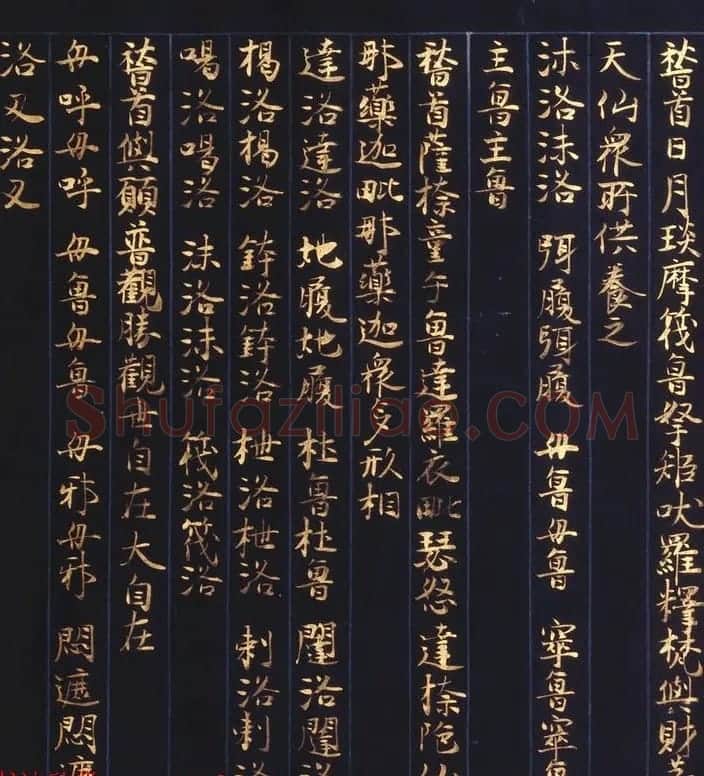 稽首日月琰摩筏魯拏矩吠羅釋梵與財
天仙眾所供養之
沫洛沫洛 弭履弭履 毋魯毋魯 窣魯窣魯
主魯主魯
稽首薩捺童子魯達羅衣毗瑟怒達捺陀
那藥迦毗那藥迦眾多形相
達洛達洛 地履地履 杜魯杜魯 闍洛闍洛
楊洛楊洛 鉢洛鉢洛 枻洛枻洛 剌洛剌洛
喝洛喝洛 沫洛沫洛 筏洛筏洛
稽首與願普觀勝觀毋自在大自在
毋呼毋呼 毋魯毋魯 毋邪毋邪 悶遮悶遮
洛叉洛叉
Shufaziliao.COM